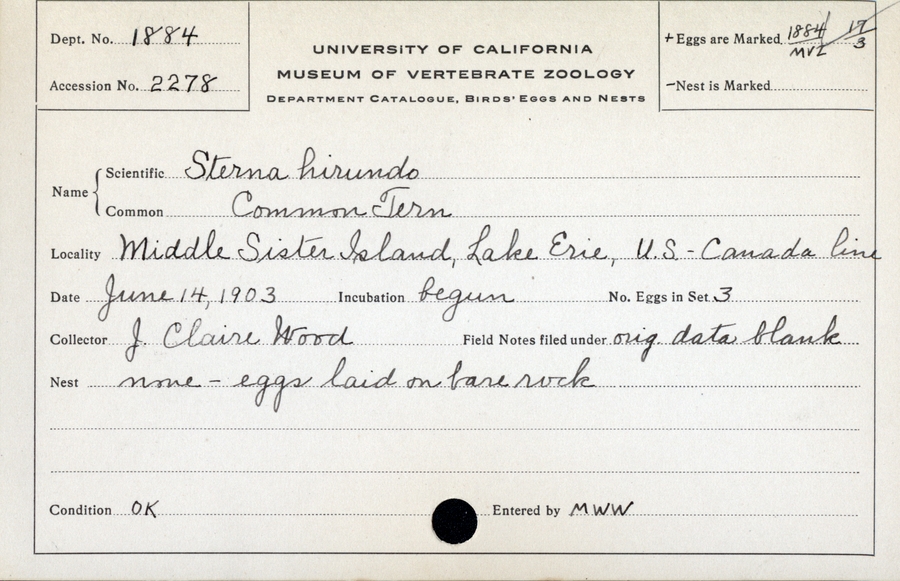 Dept. No. 1884
Accession No. 2278
UNIVERSITY OF CALIFORNIA
MUSEUM OF VERTEBRATE ZOOLOGY
DEPARTMENT CATALOGUE, BIRDS' EGGS AND NESTS
+Eggs are Marked 1884/MVZ 17/3
-Nest is Marked
Name
Scientific Sterna hirundo
Common Common Tern
Locality Middle Sister Island, Lake Erie, U.S.-Canada line
Date June 14, 1903 Incubation begun No. Eggs in Set 3
Collector J. Claire Wood Field Notes filed under orig. data blank
Nest none - eggs laid on bare rock
Condition OK Entered by MWW